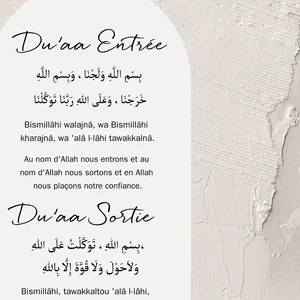 Du'aa Entrée
بِسْمِ اللَّهِ وَلَجْنَا ، وَبِسْمِ اللَّهِ
خَرَجْنَا ، وَعَلَى اللَّهِ رَبِّنَا تَوَكَّلْنَا
Bismillâhi walajnâ, wa Bismillâhi
kharajnâ, wa 'alâ l-lâhi tawakkalnâ.
Au nom d'Allah nous entrons et au
nom d'Allah nous sortons et en Allah
nous plaçons notre confiance.
Du'aa Sortie
بِسْمِ اللهِ ، تَوَكَّلْتُ عَلَى اللهِ،
وَلاَحَوْلَ وَلَا قُوَّةَ إِلَّا بِاللهِ
Bismillâhi, tawakkaltou 'alâ l-lâhi,